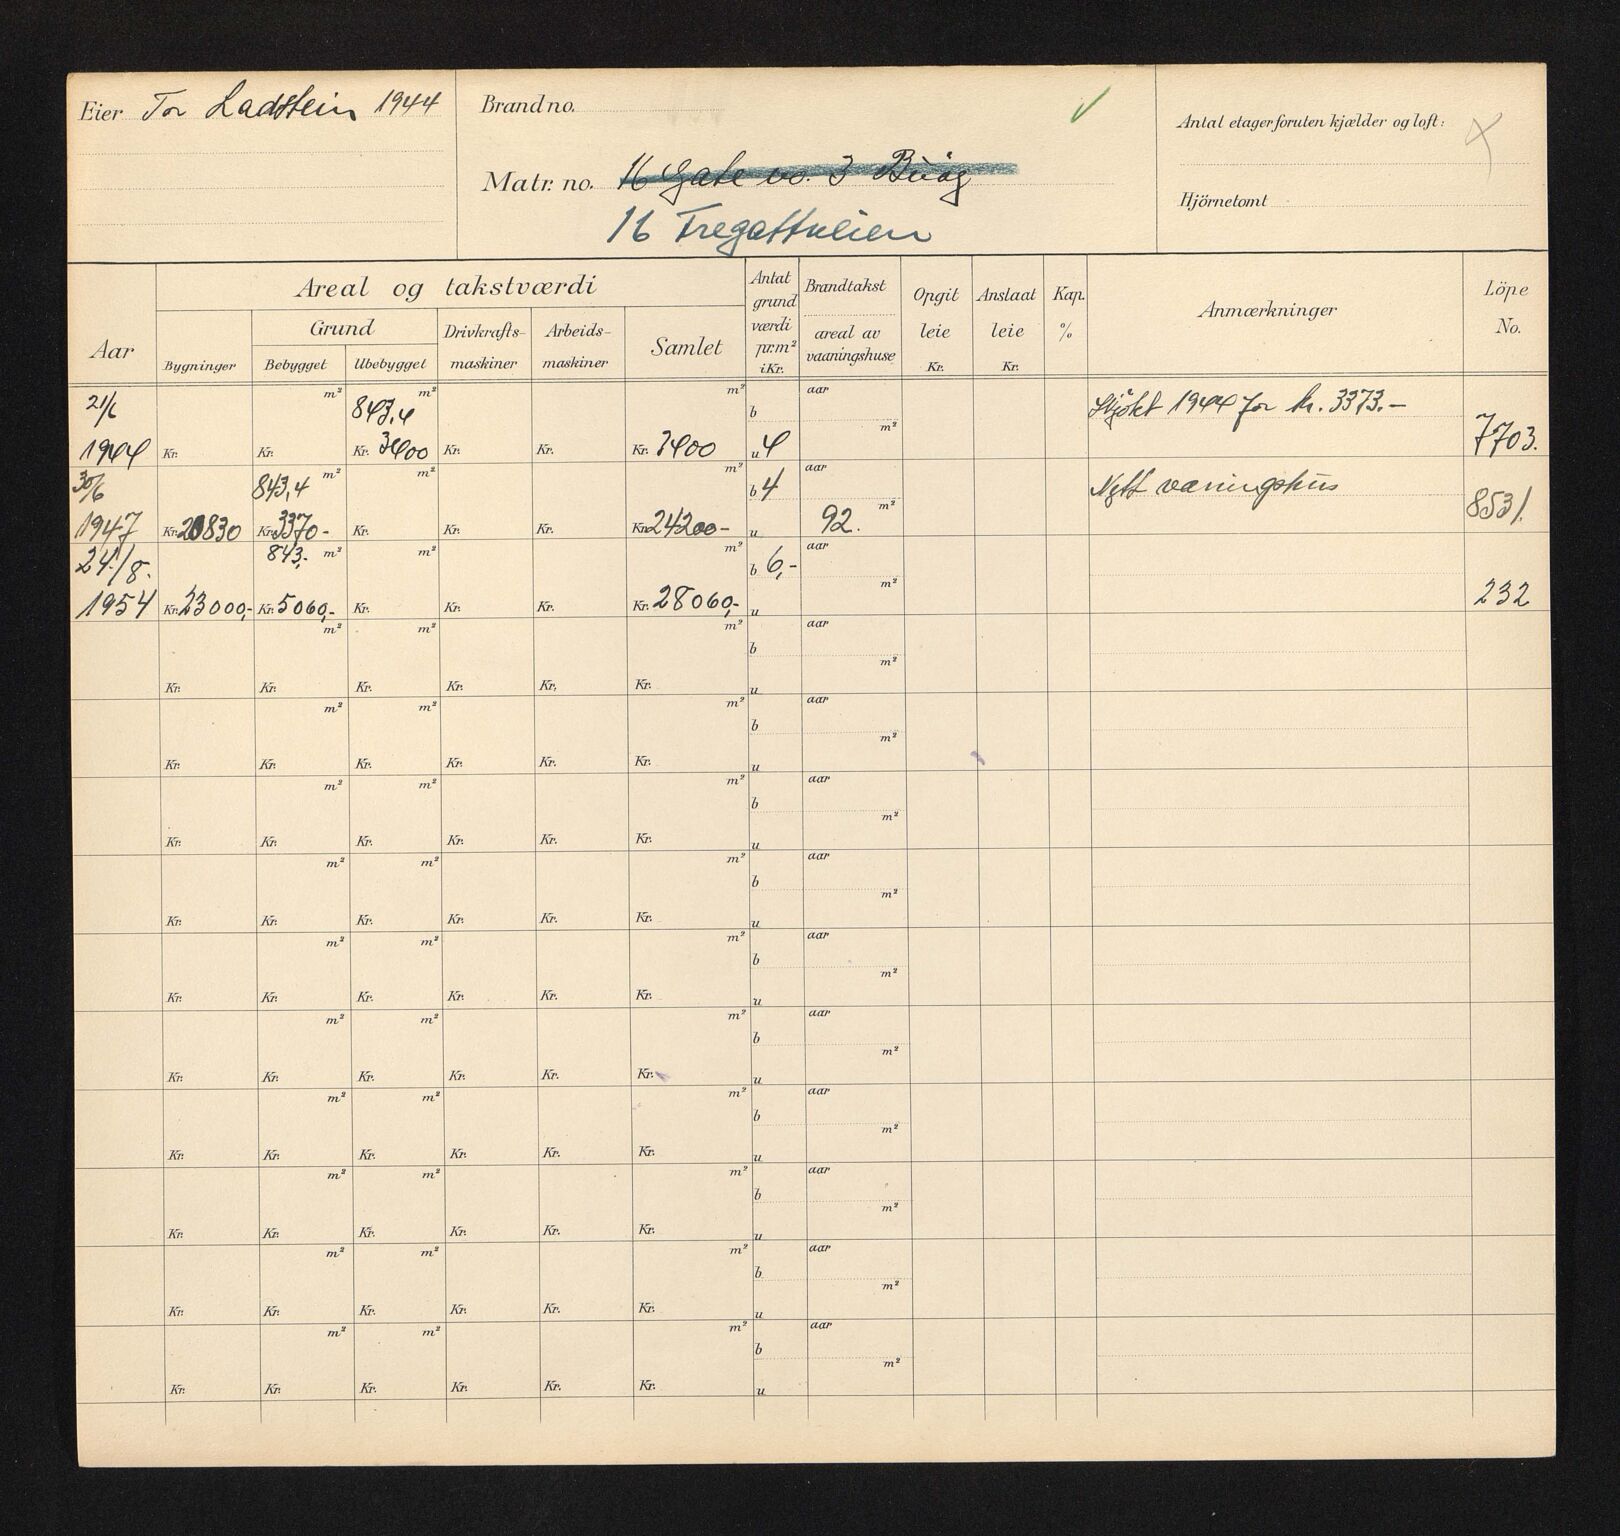 Eier Tor Ladstein 1944
Brandno.
Matr. no. 16 Gate no. 3 Buøy
16 Tregattveien
Antal etager foruten kjælder og loft:
Hjörnetomt
Areal og takstværdi
Aar
Bygninger
Grund
Bebygget
Ubebygget
Drivkrafts-
maskiner
Arbeids-
maskiner
Samlet
Antat
grund
værdi
pr.m²
i Kr.
Brandtakst
areal av
vaaningshuse
Opgit
leie
Kr.
Anslaat
leie
Kr.
Kap.
%
Anmærkninger
Löpe
No.
21/6 m² 843,4 m² m² b aar Skjøtet 1944 for kr. 3373.-
1944 Kr. Kr. Kr. 3400 Kr. Kr. Kr. 3400 u 4 m² 7703.
30/6 843,4 m² m² m² b 4 aar Nytt våningshus
1947 Kr. 20830 Kr. 3370- Kr. Kr. Kr. Kr. 24200- u 92. m² 8531.
24./8. 843,- m² m² m² b 6,- aar
1954 Kr. 23000,- Kr. 5060,- Kr. Kr. Kr. Kr. 28060,- u m² 232
m² m² m² b aar
Kr. Kr. Kr. Kr. Kr. Kr. u m²
m² m² m² b aar
Kr. Kr. Kr. Kr. Kr. Kr. u m²
m² m² m² b aar
Kr. Kr. Kr. Kr. Kr. Kr. u m²
m² m² m² b aar
Kr. Kr. Kr. Kr. Kr. Kr. u m²
m² m² m² b aar
Kr. Kr. Kr. Kr. Kr. Kr. u m²
m² m² m² b aar
Kr. Kr. Kr. Kr. Kr. Kr. u m²
m² m² m² b aar
Kr. Kr. Kr. Kr. Kr. Kr. u m²
m² m² m² b aar
Kr. Kr. Kr. Kr. Kr. Kr. u m²
m² m² m² b aar
Kr. Kr. Kr. Kr. Kr. Kr. u m²
m² m² m² b aar
Kr. Kr. Kr. Kr. Kr. Kr. u m²